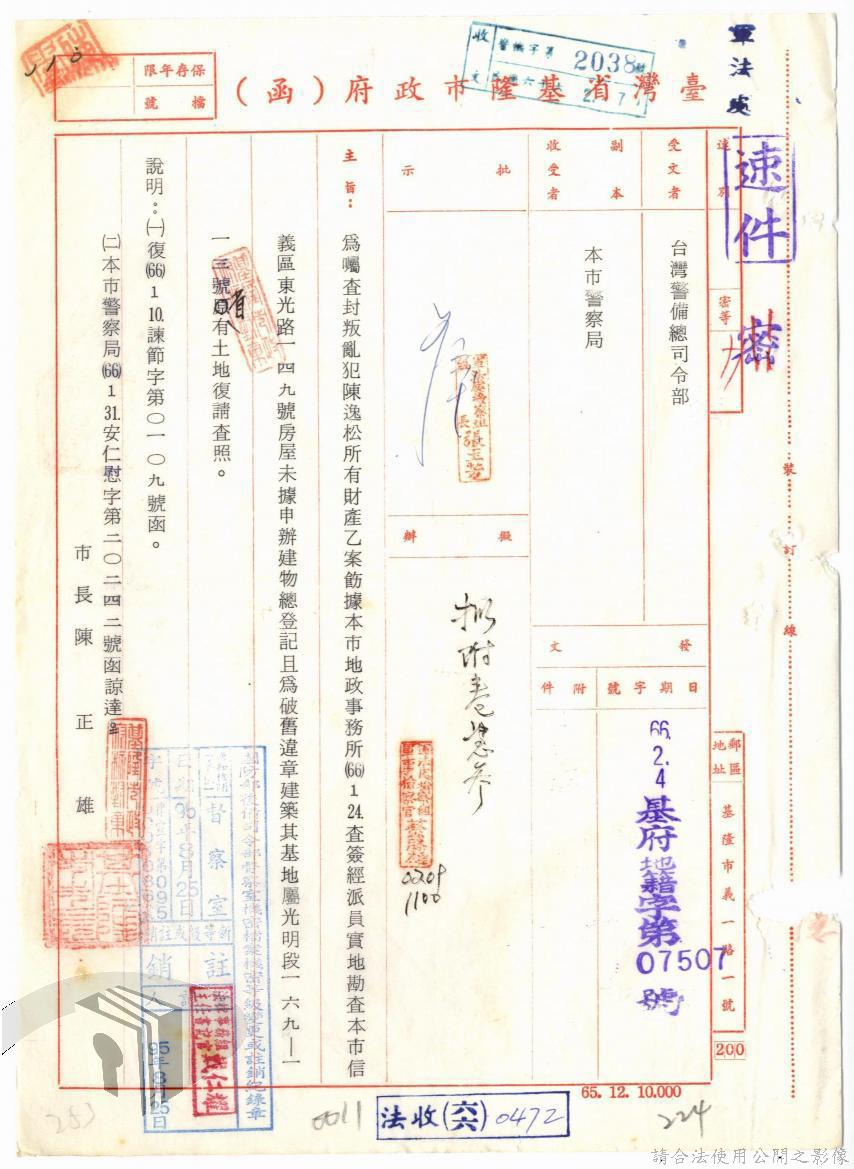 軍法處
速件
密
臺灣省基隆市政府（函）
保存年限
檔號
110
收文
警機字第2038號
2.7
速別
密等
受文者
台灣警備總司令部
副本收受者
本市警察局
發文
日期字號附件
66.2.4
基府地籍字第07507號
郵區地址
基隆市義一路一號
200
批示
擬辦
擬附卷慧參
0209
1100
主旨：為囑查封叛亂犯陳逸松所有財產乙案飭據本市地政事務所(66)1 24.查簽經派員實地勘查本市信
義區東光路一四九號房屋未據申辦建物總登記且為破舊違章建築其基地屬光明段一六九—一
一三號原有土地復請查照。
說明：㈠復(66)1 10.諫節字第〇一〇九號函。
㈡本市警察局(66)1 31.安仁慰字第二〇二四二號函諒達。
市長陳正雄
國防部後備司令部督察室機密檔案機密等級變更或註銷紀錄章
督察室
日期
95年8月25日
註銷
95年8月25日
裝訂線
65. 12. 10.000
法收(六六)0472
0011
224
283
請合法使用公開之影像